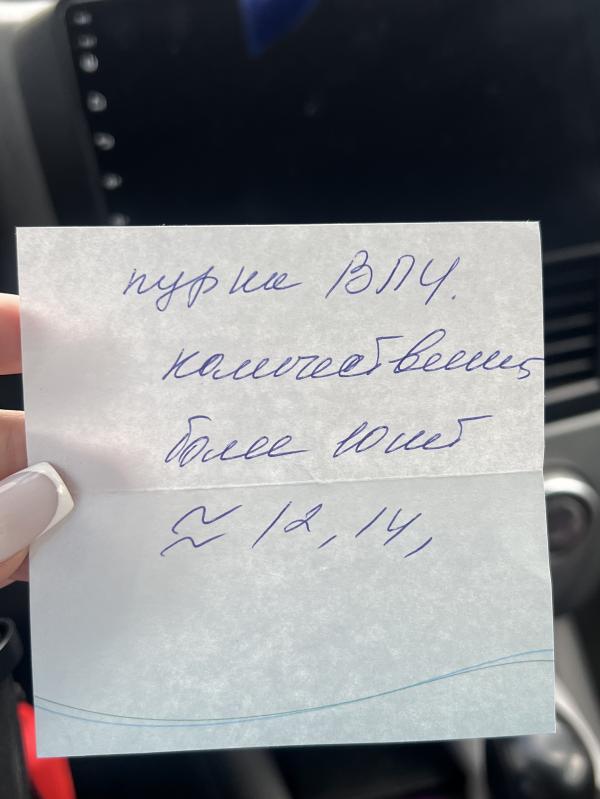 пурка ВПЧ.
количествен
более 10шт
≈ 12, 14,